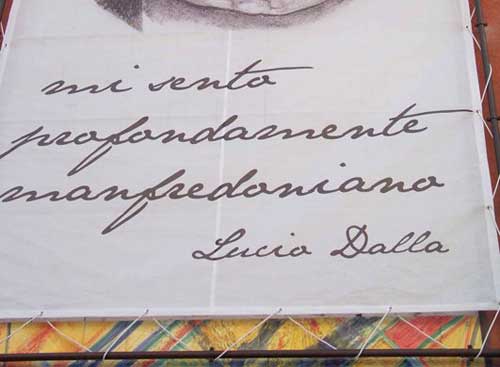 mi sento
profondamente
manfredoniano
Lucio Dalla